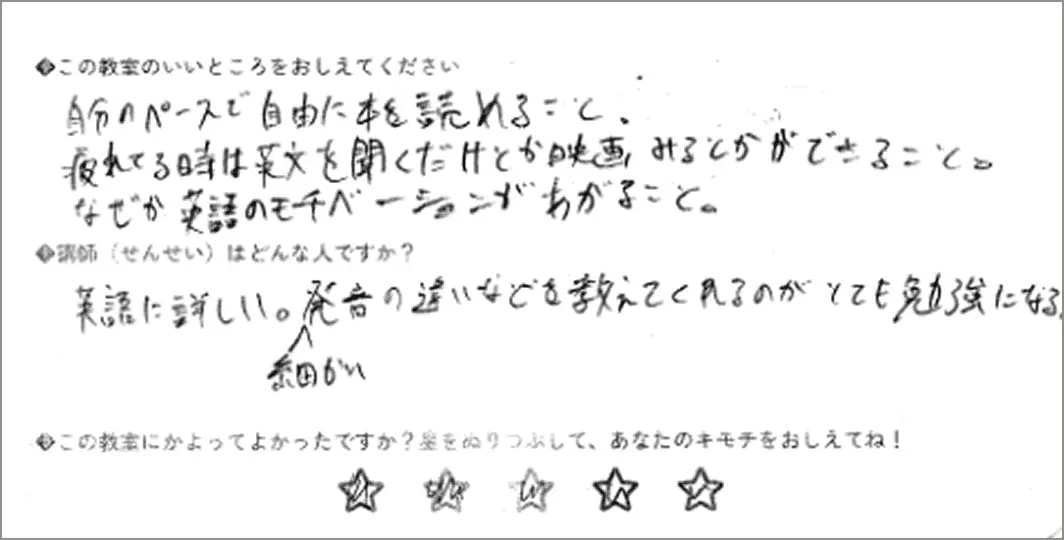 この教室のいいところをおしえてください
自分のペースで自由に本を読めること。
疲れてる時は英文を聞くだけとか映画みるとかができること。
なぜか英語のモチベーションがあがること。
講師（せんせい）はどんな人ですか？
英語に詳しい。発音の違いなどを教えてくれるのがとても勉強になる。
細かい
この教室にかよってよかったですか？星をぬりつぶして、あなたのキモチをおしえてね！